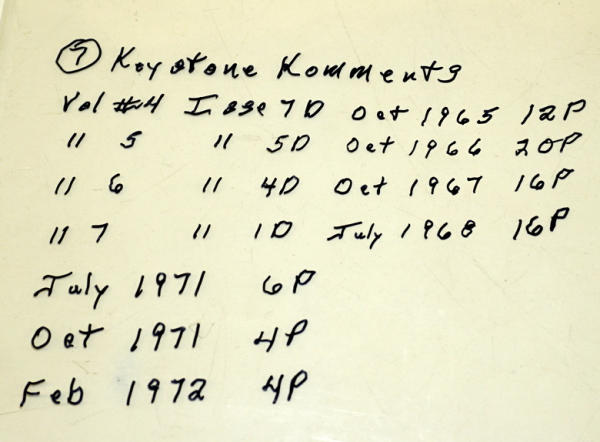 7 Keystone Komments
Vol #4 Issue 7D Oct 1965 12P
" 5 " 5D Oct 1966 20P
" 6 " 4D Oct 1967 16P
" 7 " 1D July 1968 16P
July 1971 6P
Oct 1971 4P
Feb 1972 4P